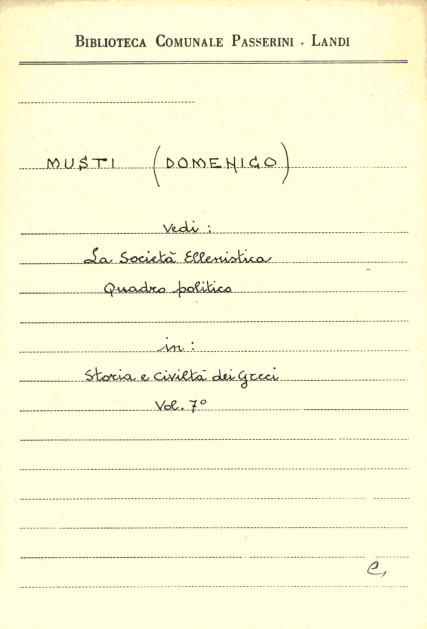 BIBLIOTECA COMUNALE PASSERINI - LANDI
MUSTI (DOMENICO)
Vedi:
La Società Ellenistica
Quadro politico
in:
Storia e civiltà dei Greci
Vol. 7º
C,